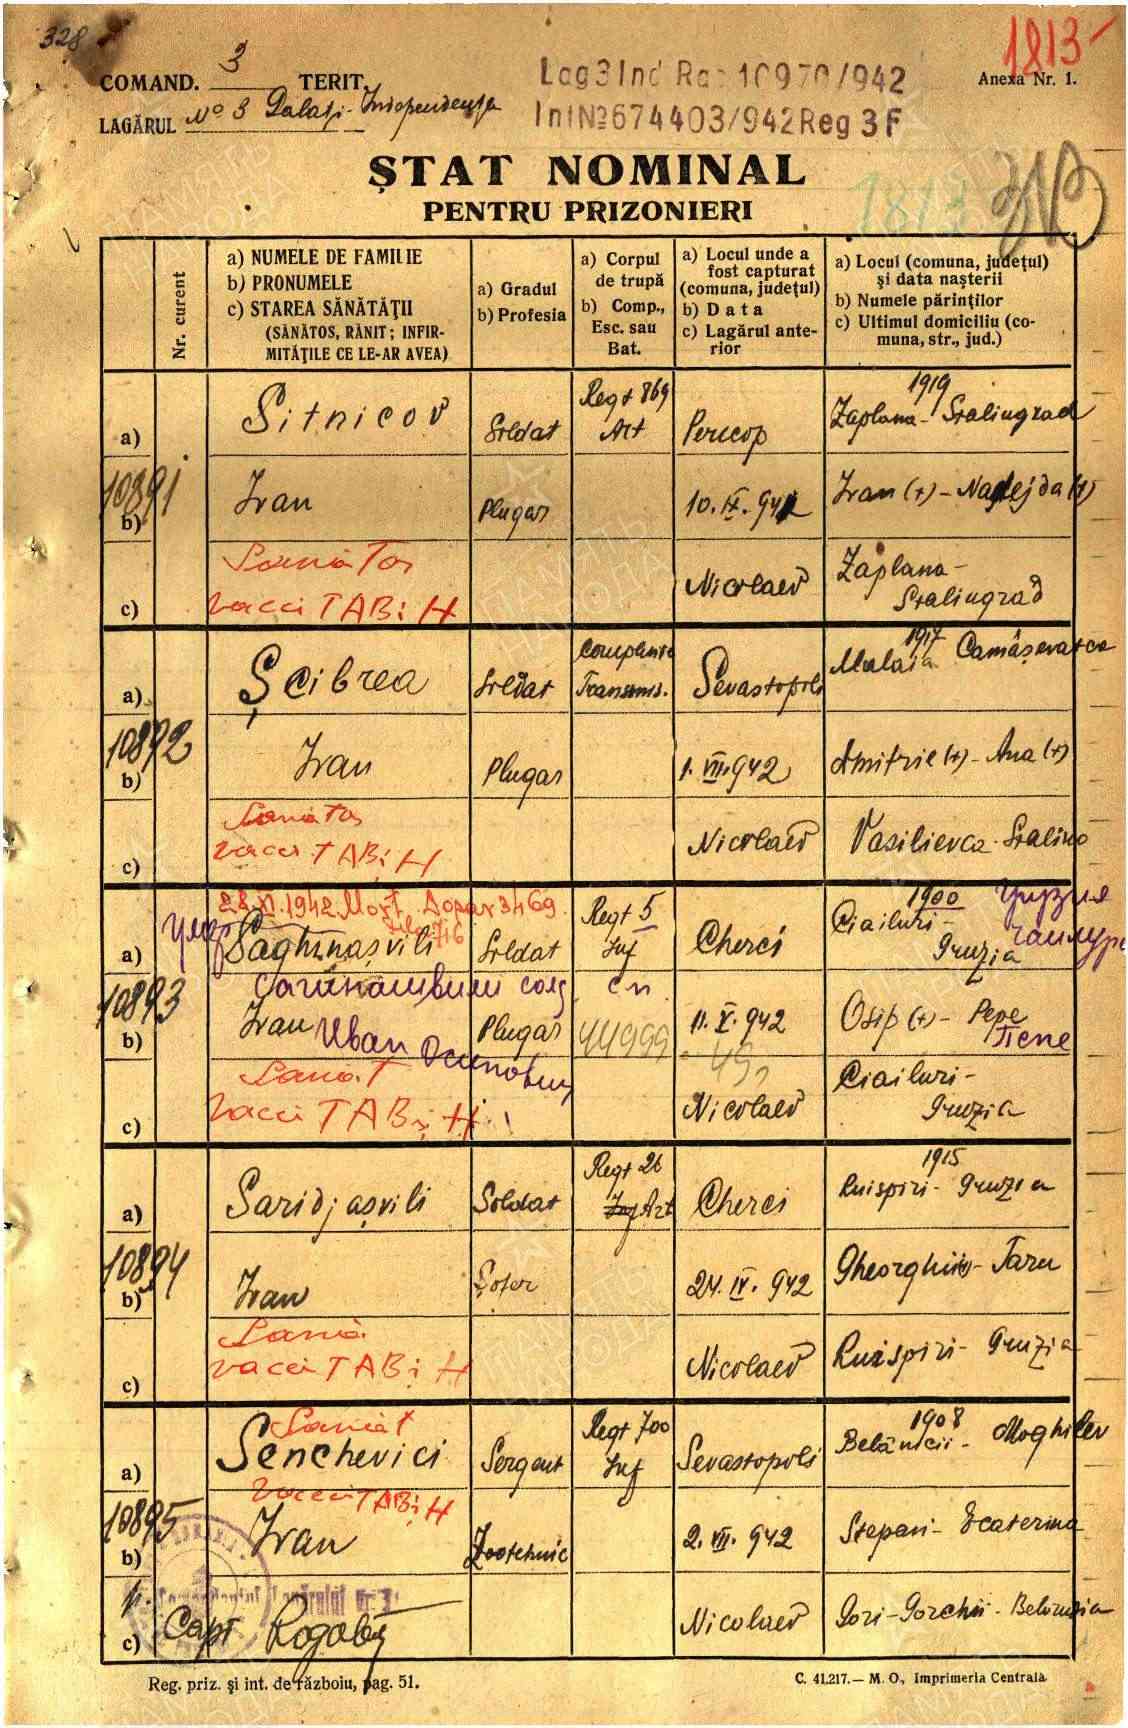 328
1813
COMAND. 3 TERIT.
Lag 3 Ind Ra: 10970/942
Anexa Nr. 1.
LAGĂRUL No 3 Galați-Independența
Int №674403/942 Reg 3F
ȘTAT NOMINAL
1813
PENTRU PRIZONIERI
Nr. curent
a) NUMELE DE FAMILIE
b) PRONUMELE
c) STAREA SĂNĂTĂŢII
(SĂNĂTOS, RĂNIT; INFIR-
MITĂŢILE CE LE-AR AVEA)
a) Gradul
b) Profesia
a) Corpul
de trupă
b) Comp.,
Esc. sau
Bat.
a) Locul unde a
fost capturat
(comuna, judeţul)
b) Data
c) Lagărul ante-
rior
a) Locul (comuna, judeţul)
şi data naşterii
b) Numele părinţilor
c) Ultimul domiciliu (co-
muna, str., jud.)
a) Sitnicov Soldat Regt 869 Art Pericop 1919 Zaplana-Stalingrad
10891
b) Ivan Plugar 10.IX.942 Ivan (+) - Nadejda (+)
Sanatos
c) vacci TABi H Nicolaev Zaplana-
Stalingrad
a) Șcibrea Soldat Compania Transmis. Sevastopoli 1917 Malaia Camâșevatca
10892
b) Ivan Plugar 1.VII.942 Dmitrie (+) - Ana (+)
Sanatos
c) vacci TABi H Nicolaev Vasilievca-Stalino
28.XI.1942 Mort. Dosar 3469
умер
a) Saghinașvili Soldat Regt 5 Inf Cherci 1900 Ciailuri-Gruzia
Грузия
Чаилури
Сагинашвили солд. сп.
10893
b) Ivan Plugar 11.V.942 Osip (+) - Pepe
Иван Осипович 44999 Пепе
Sanat
c) vacci TABi H Nicolaev Ciailuri-
Gruzia
a) Saridjașvili Soldat Regt 26 Art Cherci 1915 Ruispiri-Gruzia
10894
b) Ivan Șofer 24.IV.942 Gheorghie - Taru
Sana
c) vacci TABi H Nicolaev Ruispiri-Gruzia
Sanat
a) Senchevici Sergent Regt 700 Inf Sevastopoli 1908 Belânicii-Moghilev
vacci TABi H
10895
b) Ivan Zootehnic 2.VII.942 Stepan-Ecaterina
p.
c) Capt Nicolaev Gori-Gorchii-Belorusia
Reg. priz. şi int. de război, pag. 51.
C. 41.217.— M. O., Imprimeria Centrală